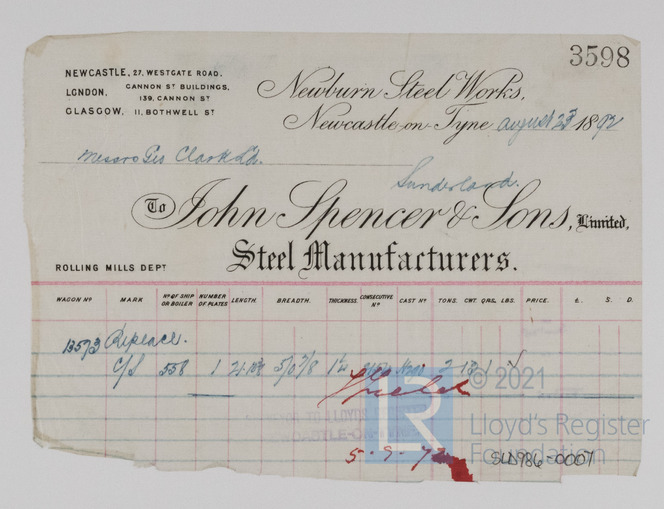 3598
NEWCASTLE, 27, WESTGATE ROAD,
LONDON, CANNON ST BUILDINGS, 139, CANNON ST
GLASGOW, 11, BOTHWELL ST
Newburn Steel Works,
Newcastle-on-Tyne august 23 1892
Messrs Geo Clark Ld.
Sunderland.
To John Spencer & Sons, Limited,
Steel Manufacturers.
ROLLING MILLS DEPT
WAGON NO MARK NO OF SHIP OR BOILER NUMBER OF PLATES LENGTH. BREADTH. THICKNESS. CONSECUTIVE NO CAST NO TONS. CWT. QRS. LBS. PRICE. £. S. D.
13573 Replace.
C/S 558 1 5/0 7/8 1 1/4 2 13 1
© 2021
LR
Lloyd's Register
Foundation
5.9.92
SLD986-0007